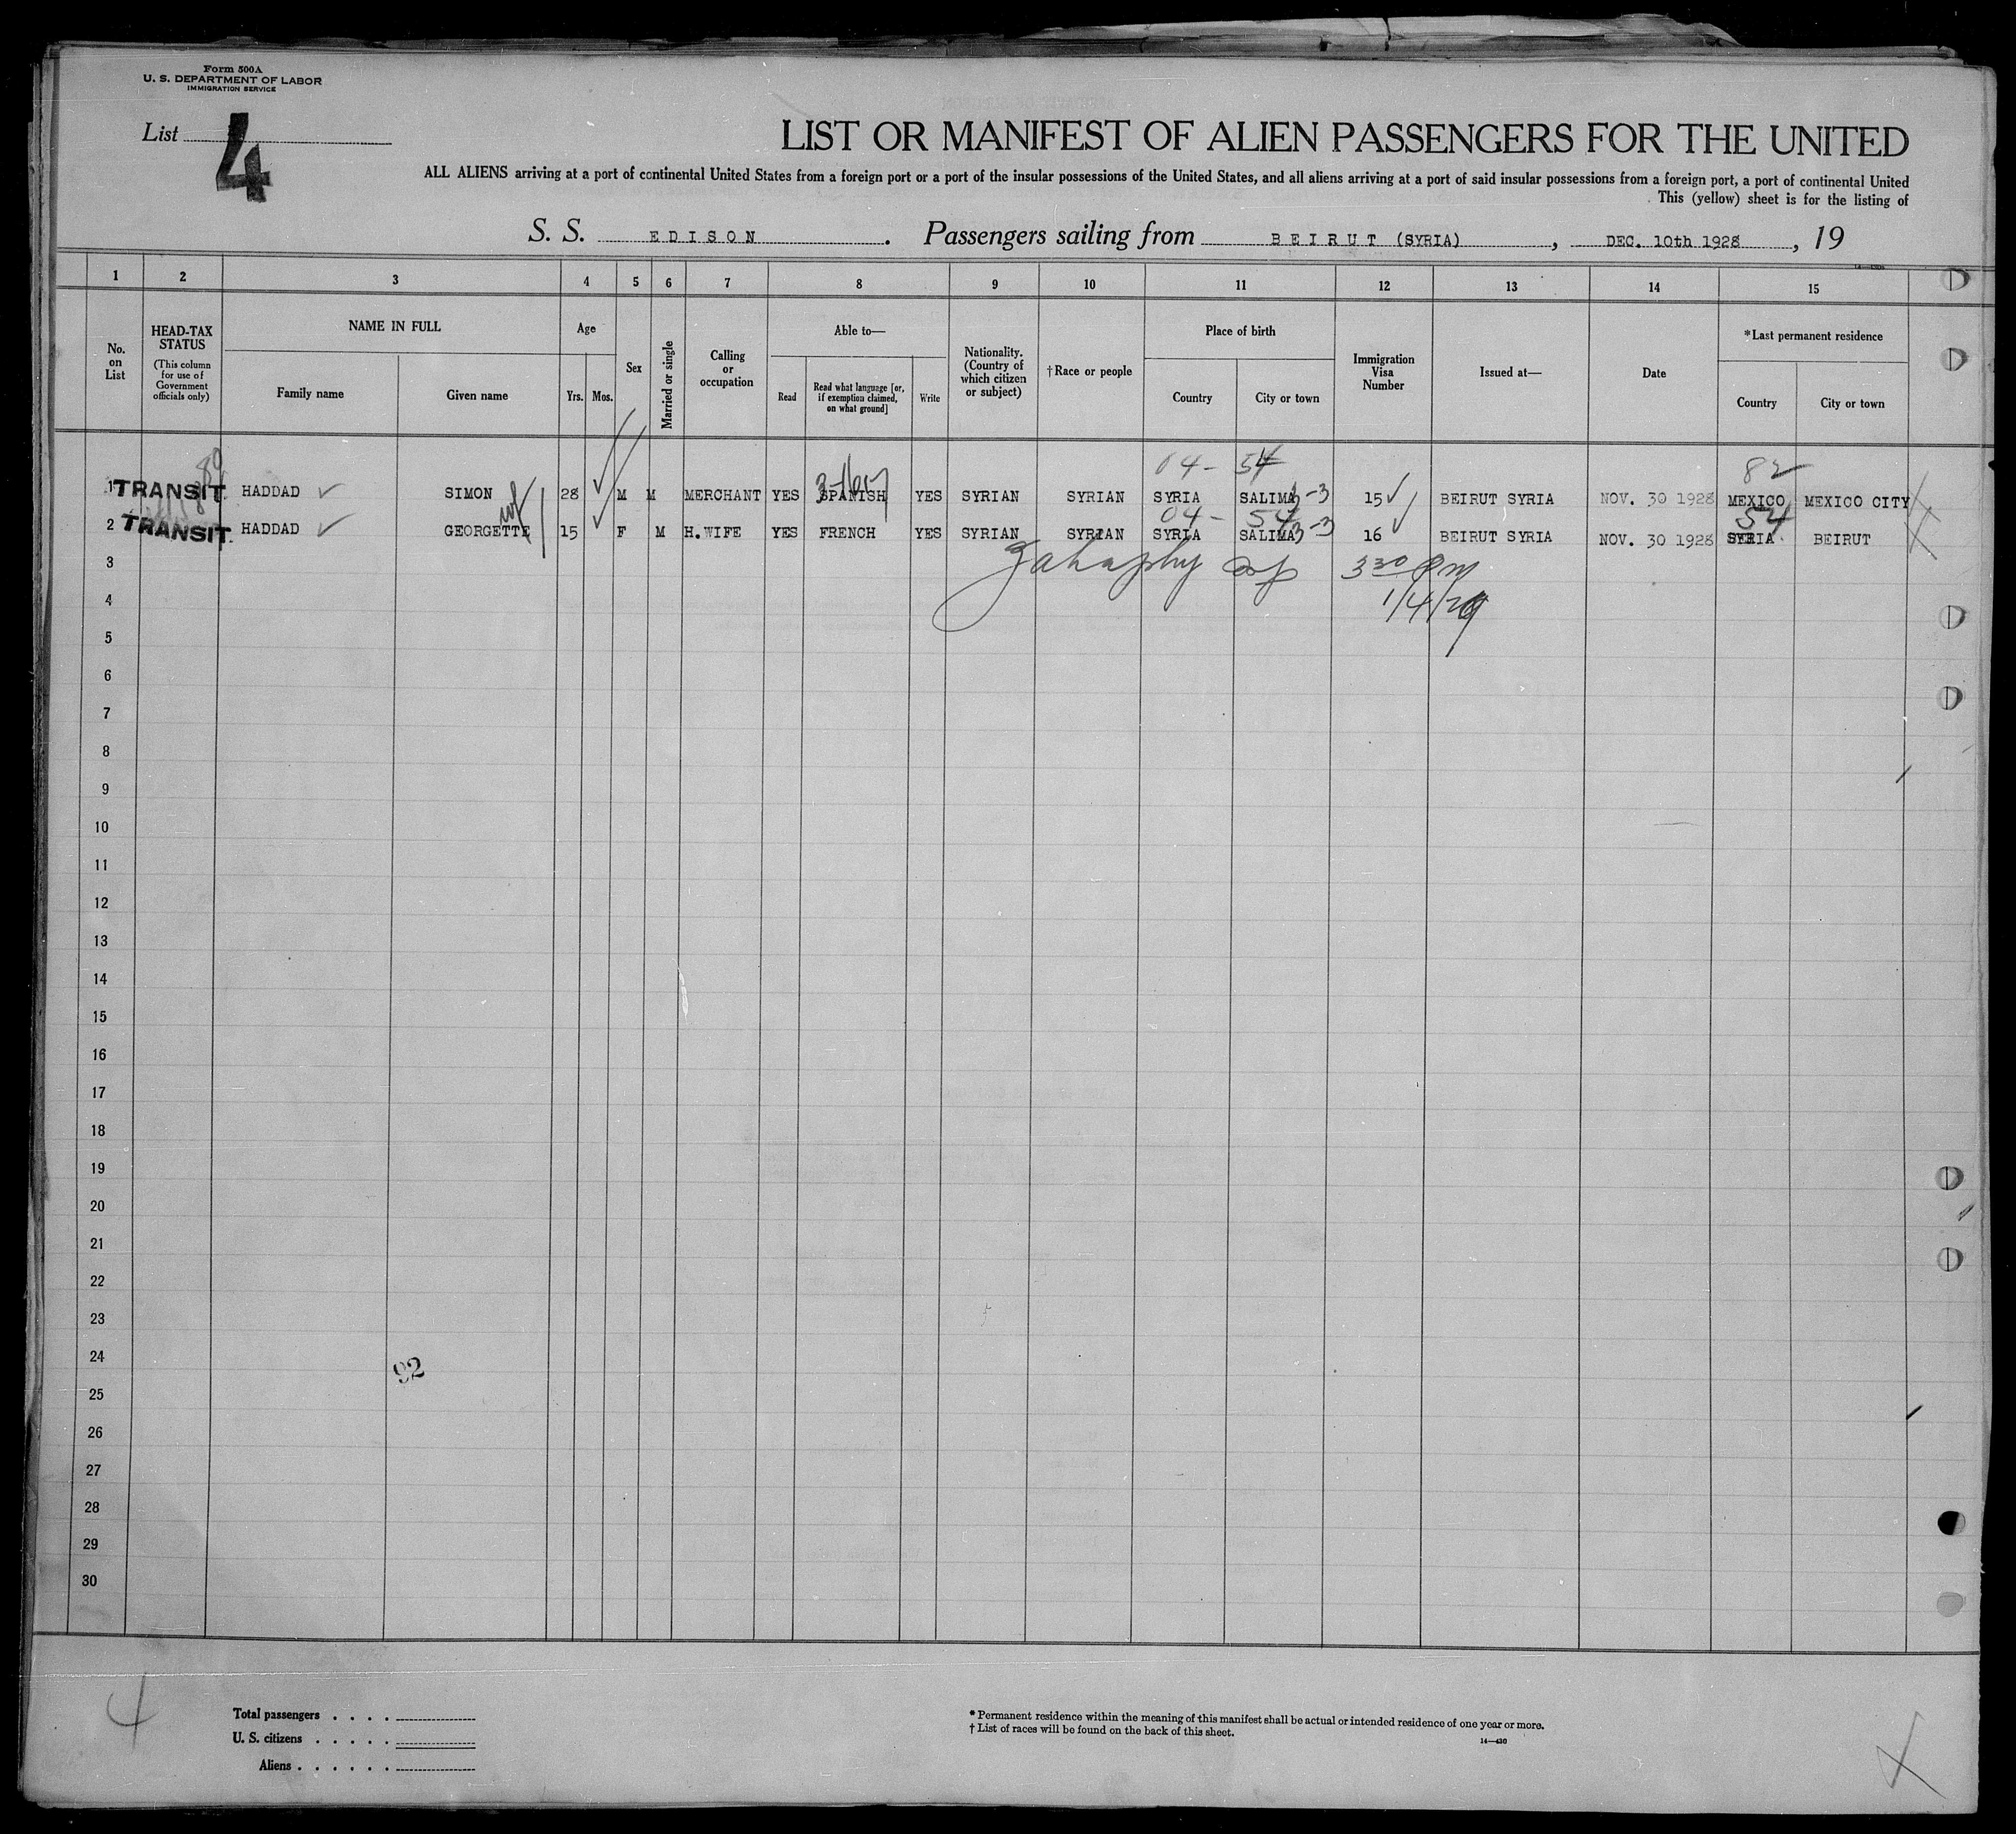 Form 500A
U. S. DEPARTMENT OF LABOR
IMMIGRATION SERVICE
List 4
LIST OR MANIFEST OF ALIEN PASSENGERS FOR THE UNITED
ALL ALIENS arriving at a port of continental United States from a foreign port or a port of the insular possessions of the United States, and all aliens arriving at a port of said insular possessions from a foreign port, a port of continental United
This (yellow) sheet is for the listing of
S. S. EDISON. Passengers sailing from BEIRUT (SYRIA), DEC. 10th 1928, 19
1 2 3 4 5 6 7 8 9 10 11 12 13 14 15
No. on List
HEAD-TAX STATUS
(This column for use of Government officials only)
NAME IN FULL
Family name
Given name
Age
Yrs. Mos.
Sex
Married or single
Calling or occupation
Able to—
Read
Read what language [or, if exemption claimed, on what ground]
Write
Nationality. (Country of which citizen or subject)
†Race or people
Place of birth
Country
City or town
Immigration Visa Number
Issued at—
Date
*Last permanent residence
Country
City or town
04- 54 82
1 TRANSIT HADDAD SIMON 28 M M MERCHANT YES SPANISH YES SYRIAN SYRIAN SYRIA SALIMA 3-3 15 BEIRUT SYRIA NOV. 30 1928 MEXICO MEXICO CITY
04- 54 54
2 TRANSIT HADDAD GEORGETTE wf 15 F M H.WIFE YES FRENCH YES SYRIAN SYRIAN SYRIA SALIMA 3-3 16 BEIRUT SYRIA NOV. 30 1928 SYRIA BEIRUT
3 330 Pm
4 1/4/29
5
6
7
8
9
10
11
12
13
14
15
16
17
18
19
20
21
22
23
24
92
25
26
27
28
29
30
Total passengers . . . .
U. S. citizens . . . . .
Aliens . . . . . .
* Permanent residence within the meaning of this manifest shall be actual or intended residence of one year or more.
† List of races will be found on the back of this sheet.
14—430